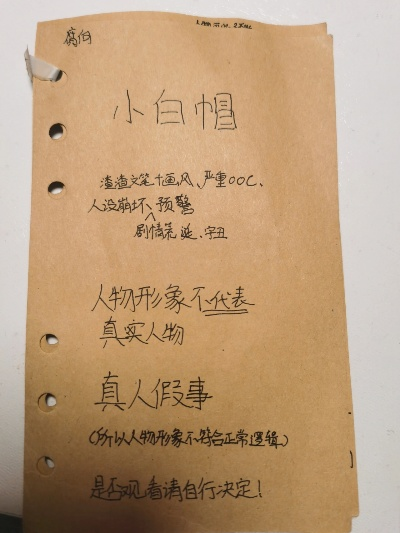 腐向
小白帽
渣渣文笔+画风、严重OOC、
人设崩坏、预警
剧情荒诞、字丑
人物形象不代表
真实人物
真人假事
(所以人物形象不符合正常逻辑)
是否观看请自行决定!